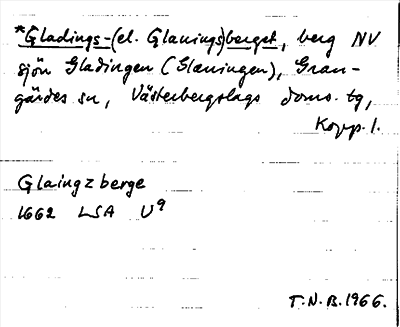 *Gladings-(el. Glanings)berget, berg NV
sjön Gladingen (Glaningen), Gran-
gärdes sn, Västerbergslags doms. tg,
Kopp. l.
Glaingzberge
1662 LSA U9
T.N.B. 1966.